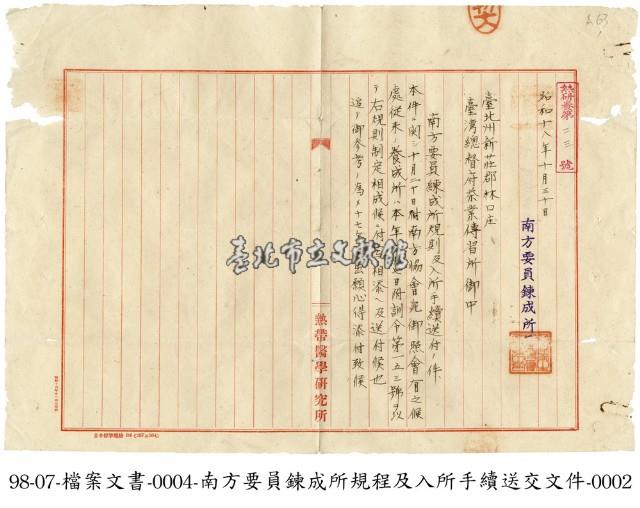 熱研養第二三號
昭和十八年十月三十日
南方要員鍊成所
臺北州新莊郡林口庄
臺灣總督府茶業傳習所御中
南方要員鍊成所規則及入所手續送付ノ件
本件ニ関シ十月二十日附南方協會宛御照會有之候
處從来ノ養成所ハ本年 日附訓令第一五三號ヲ以
テ右規則制定相成候ニ付 相添ヘ及送付候也
追テ御参考ノ為メ十七年 出願心得添付致候
臺北市立文獻館
熱帶醫學研究所
98-07-檔案文書-0004-南方要員鍊成所規程及入所手續送交文件-0002